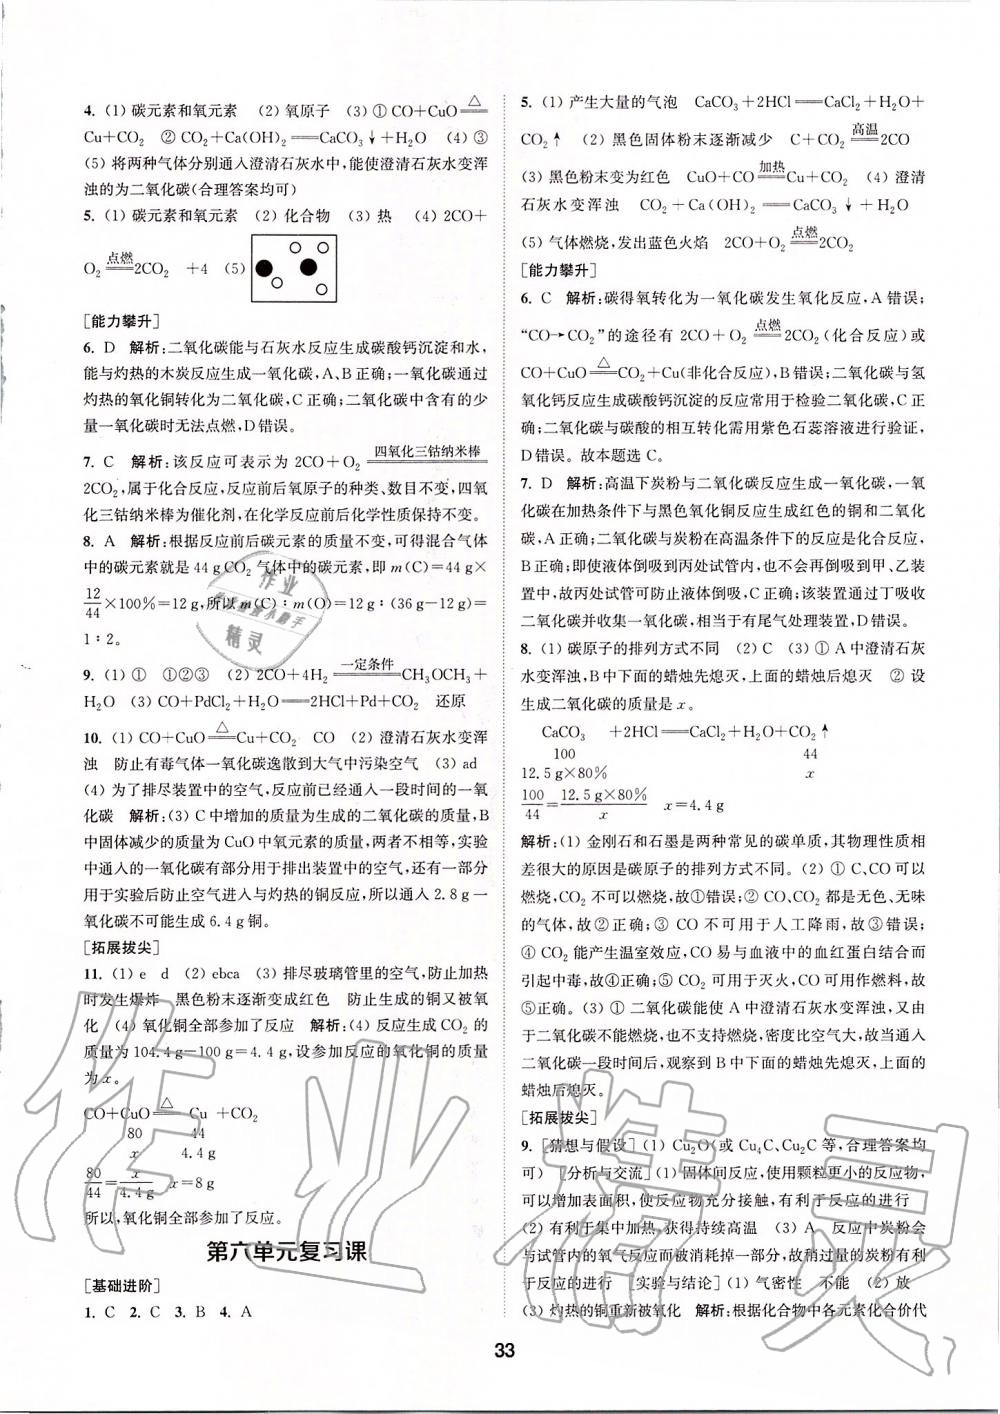 4. (1) 碳元素和氧元素 (2) 氧原子 (3) ① CO+CuO══△══
Cu+CO₂ ② CO₂+Ca(OH)₂══CaCO₃↓+H₂O (4) ③
(5) 将两种气体分别通入澄清石灰水中,能使澄清石灰水变浑
浊的为二氧化碳(合理答案均可)
5. (1) 碳元素和氧元素 (2) 化合物 (3) 热 (4) 2CO+
O₂══点燃══2CO₂ +4 (5)
[能力攀升]
6. D 解析:二氧化碳能与石灰水反应生成碳酸钙沉淀和水,
能与灼热的木炭反应生成一氧化碳,A、B正确;一氧化碳通过
灼热的氧化铜转化为二氧化碳,C正确;二氧化碳中含有的少
量一氧化碳时无法点燃,D错误。
7. C 解析:该反应可表示为 2CO+O₂══四氧化三钴纳米棒══
2CO₂,属于化合反应,反应前后氧原子的种类、数目不变,四氧
化三钴纳米棒为催化剂,在化学反应前后化学性质保持不变。
8. A 解析:根据反应前后碳元素的质量不变,可得混合气体
中的碳元素就是 44 g CO₂ 气体中的碳元素,即 m(C)=44 g×
12/44×100%=12 g,所以 m(C):m(O)=12 g:(36 g-12 g)=
1:2。
9. (1) ① ①②③ (2) 2CO+4H₂══一定条件══CH₃OCH₃+
H₂O (3) CO+PdCl₂+H₂O══2HCl+Pd+CO₂ 还原
10. (1) CO+CuO══△══Cu+CO₂ CO (2) 澄清石灰水变浑
浊 防止有毒气体一氧化碳逸散到大气中污染空气 (3) ad
(4) 为了排尽装置中的空气,反应前已经通入一段时间的一氧
化碳 解析:(3) C中增加的质量为生成的二氧化碳的质量,B
中固体减少的质量为CuO中氧元素的质量,两者不相等,实验
中通入的一氧化碳有部分用于排出装置中的空气,还有一部分
用于实验后防止空气进入与灼热的铜反应,所以通入 2.8 g 一
氧化碳不可能生成 6.4 g 铜。
[拓展拔尖]
11. (1) e d (2) ebca (3) 排尽玻璃管里的空气,防止加热
时发生爆炸 黑色粉末逐渐变成红色 防止生成的铜又被氧
化 (4) 氧化铜全部参加了反应 解析:(4) 反应生成 CO₂ 的
质量为 104.4 g-100 g=4.4 g,设参加反应的氧化铜的质量
为 x。
CO+CuO══△══ Cu +CO₂
80 44
x 4.4 g
80/44=x/4.4 g x=8 g
所以,氧化铜全部参加了反应。
第六单元复习课
[基础进阶]
1. C 2. C 3. B 4. A
5. (1) 产生大量的气泡 CaCO₃+2HCl══CaCl₂+H₂O+
CO₂↑ (2) 黑色固体粉末逐渐减少 C+CO₂══高温══2CO
(3) 黑色粉末变为红色 CuO+CO══加热══Cu+CO₂ (4) 澄清
石灰水变浑浊 CO₂+Ca(OH)₂══CaCO₃↓+H₂O
(5) 气体燃烧,发出蓝色火焰 2CO+O₂══点燃══2CO₂
[能力攀升]
6. C 解析:碳得氧转化为一氧化碳发生氧化反应,A错误;
“CO→CO₂”的途径有 2CO+O₂══点燃══2CO₂(化合反应)或
CO+CuO══△══CO₂+Cu(非化合反应),B错误;二氧化碳与氢
氧化钙反应生成碳酸钙沉淀的反应常用于检验二氧化碳,C正
确;二氧化碳与碳酸的相互转化需用紫色石蕊溶液进行验证,
D错误。故本题选C。
7. D 解析:高温下炭粉与二氧化碳反应生成一氧化碳,一氧
化碳在加热条件下与黑色氧化铜反应生成红色的铜和二氧化
碳,A正确;二氧化碳与炭粉在高温条件下的反应是化合反应,
B正确;即使液体倒吸到丙处试管内,也不会再倒吸到甲、乙装
置中,故丙处试管可防止液体倒吸,C正确;该装置通过丁吸收
二氧化碳并收集一氧化碳,相当于有尾气处理装置,D错误。
8. (1) 碳原子的排列方式不同 (2) C (3) ① A中澄清石灰
水变浑浊,B中下面的蜡烛先熄灭,上面的蜡烛后熄灭 ② 设
生成二氧化碳的质量是 x。
CaCO₃ +2HCl══CaCl₂+H₂O+CO₂↑
100 44
12.5 g×80% x
100/44=12.5 g×80%/x x=4.4 g
解析:(1) 金刚石和石墨是两种常见的碳单质,其物理性质相
差很大的原因是碳原子的排列方式不同。(2) ① C、CO可以
燃烧,CO₂ 不可以燃烧,故①错误;② CO、CO₂ 都是无色、无味
的气体,故②正确;③ CO 不可用于人工降雨,故③错误;
④ CO₂ 能产生温室效应,CO 易与血液中的血红蛋白结合而
引起中毒,故④正确;⑤ CO₂ 可用于灭火,CO可用作燃料,故
⑤正确。(3) ① 二氧化碳能使A中澄清石灰水变浑浊,又由
于二氧化碳不能燃烧,也不支持燃烧,密度比空气大,故当通入
二氧化碳一段时间后,观察到B中下面的蜡烛先熄灭,上面的
蜡烛后熄灭。
[拓展拔尖]
9. [猜想与假设] (1) Cu₂O(或 Cu₄C、Cu₂C 等,合理答案均
可) [分析与交流] (1) 固体间反应,使用颗粒更小的反应物,
可以增加表面积,使反应物充分接触,有利于反应的进行
(2) 有利于集中加热,获得持续高温 (3) A 反应中炭粉会
与试管内的氧气反应而被消耗掉一部分,故稍过量的炭粉有利
于反应的进行 [实验与结论] (1) 气密性 不能 (2) 放
(3) 灼热的铜重新被氧化 解析:根据化合物中各元素化合价代
33
作业精灵